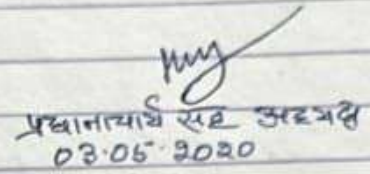 प्रधानाचार्य सह अध्यक्ष
03.05.2020